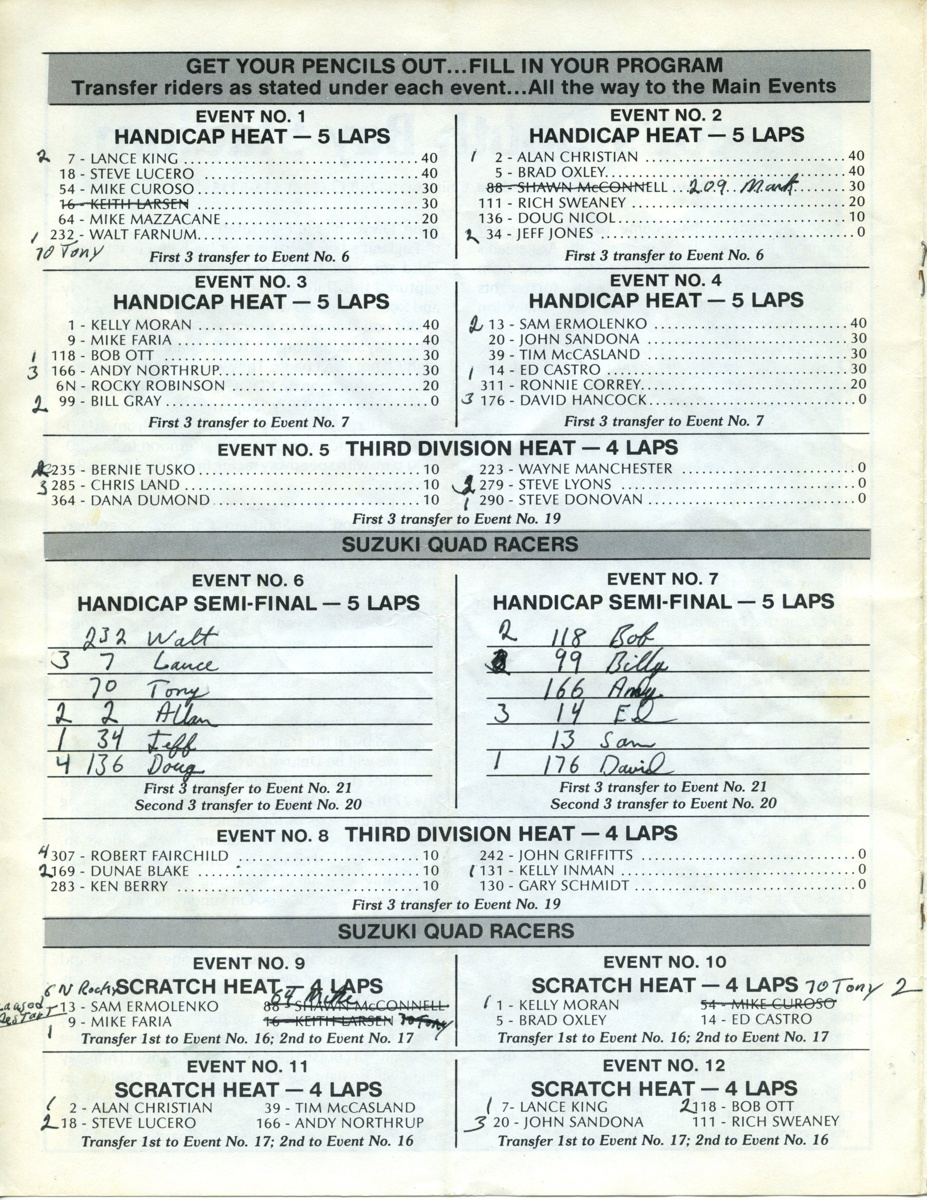 GET YOUR PENCILS OUT...FILL IN YOUR PROGRAM
Transfer riders as stated under each event...All the way to the Main Events
EVENT NO. 1
HANDICAP HEAT — 5 LAPS
2 7 - LANCE KING 40
18 - STEVE LUCERO 40
54 - MIKE CUROSO 30
16 - KEITH LARSEN 30
64 - MIKE MAZZACANE 20
1 232 - WALT FARNUM 10
70 Tony
First 3 transfer to Event No. 6
EVENT NO. 2
HANDICAP HEAT — 5 LAPS
1 2 - ALAN CHRISTIAN 40
5 - BRAD OXLEY 40
88 - SHAWN McCONNELL 209 Mark 30
111 - RICH SWEANEY 20
136 - DOUG NICOL 10
2 34 - JEFF JONES 0
First 3 transfer to Event No. 6
EVENT NO. 3
HANDICAP HEAT — 5 LAPS
1 - KELLY MORAN 40
9 - MIKE FARIA 40
1 118 - BOB OTT 30
3 166 - ANDY NORTHRUP 30
6N - ROCKY ROBINSON 20
2 99 - BILL GRAY 0
First 3 transfer to Event No. 7
EVENT NO. 4
HANDICAP HEAT — 5 LAPS
2 13 - SAM ERMOLENKO 40
20 - JOHN SANDONA 30
39 - TIM McCASLAND 30
1 14 - ED CASTRO 30
311 - RONNIE CORREY 20
3 176 - DAVID HANCOCK 0
First 3 transfer to Event No. 7
EVENT NO. 5 THIRD DIVISION HEAT — 4 LAPS
235 - BERNIE TUSKO 10
3 285 - CHRIS LAND 10
364 - DANA DUMOND 10
223 - WAYNE MANCHESTER 0
2 279 - STEVE LYONS 0
1 290 - STEVE DONOVAN 0
First 3 transfer to Event No. 19
SUZUKI QUAD RACERS
EVENT NO. 6
HANDICAP SEMI-FINAL — 5 LAPS
232 Walt
3 7 Lance
70 Tony
2 2 Allan
1 34 Jeff
4 136 Doug
First 3 transfer to Event No. 21
Second 3 transfer to Event No. 20
EVENT NO. 7
HANDICAP SEMI-FINAL — 5 LAPS
2 118 Bob
99 Billy
166 Andy
3 14 Ed
13 Sam
1 176 David
First 3 transfer to Event No. 21
Second 3 transfer to Event No. 20
EVENT NO. 8 THIRD DIVISION HEAT — 4 LAPS
4 307 - ROBERT FAIRCHILD 10
2 169 - DUNAE BLAKE 10
283 - KEN BERRY 10
242 - JOHN GRIFFITTS 0
1 131 - KELLY INMAN 0
130 - GARY SCHMIDT 0
First 3 transfer to Event No. 19
SUZUKI QUAD RACERS
EVENT NO. 9
6N Rocky SCRATCH HEAT — 4 LAPS
54 Mike
13 - SAM ERMOLENKO 88 - SHAWN McCONNELL
1 9 - MIKE FARIA 16 - KEITH LARSEN 70 Tony
Transfer 1st to Event No. 16; 2nd to Event No. 17
EVENT NO. 10
SCRATCH HEAT — 4 LAPS 70 Tony 2
1 1 - KELLY MORAN 54 - MIKE CUROSO
5 - BRAD OXLEY 14 - ED CASTRO
Transfer 1st to Event No. 16; 2nd to Event No. 17
EVENT NO. 11
SCRATCH HEAT — 4 LAPS
1 2 - ALAN CHRISTIAN 39 - TIM McCASLAND
2 18 - STEVE LUCERO 166 - ANDY NORTHRUP
Transfer 1st to Event No. 17; 2nd to Event No. 16
EVENT NO. 12
SCRATCH HEAT — 4 LAPS
1 7- LANCE KING 2 118 - BOB OTT
3 20 - JOHN SANDONA 111 - RICH SWEANEY
Transfer 1st to Event No. 17; 2nd to Event No. 16